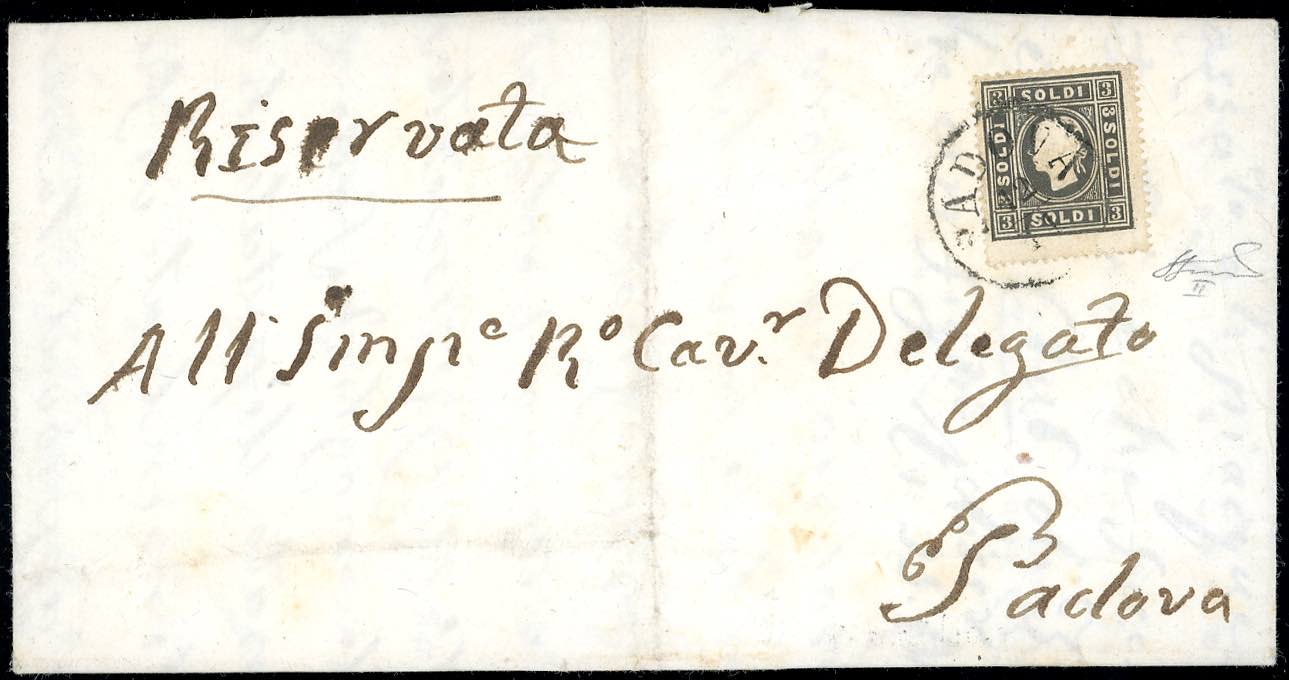 Riservata
3 SOLDI 3
3 SOLDI
3 SOLDI
3 SOLDI 3
PADOVA
12
II
All' Impe Ro Cav.r Delegato
Padova